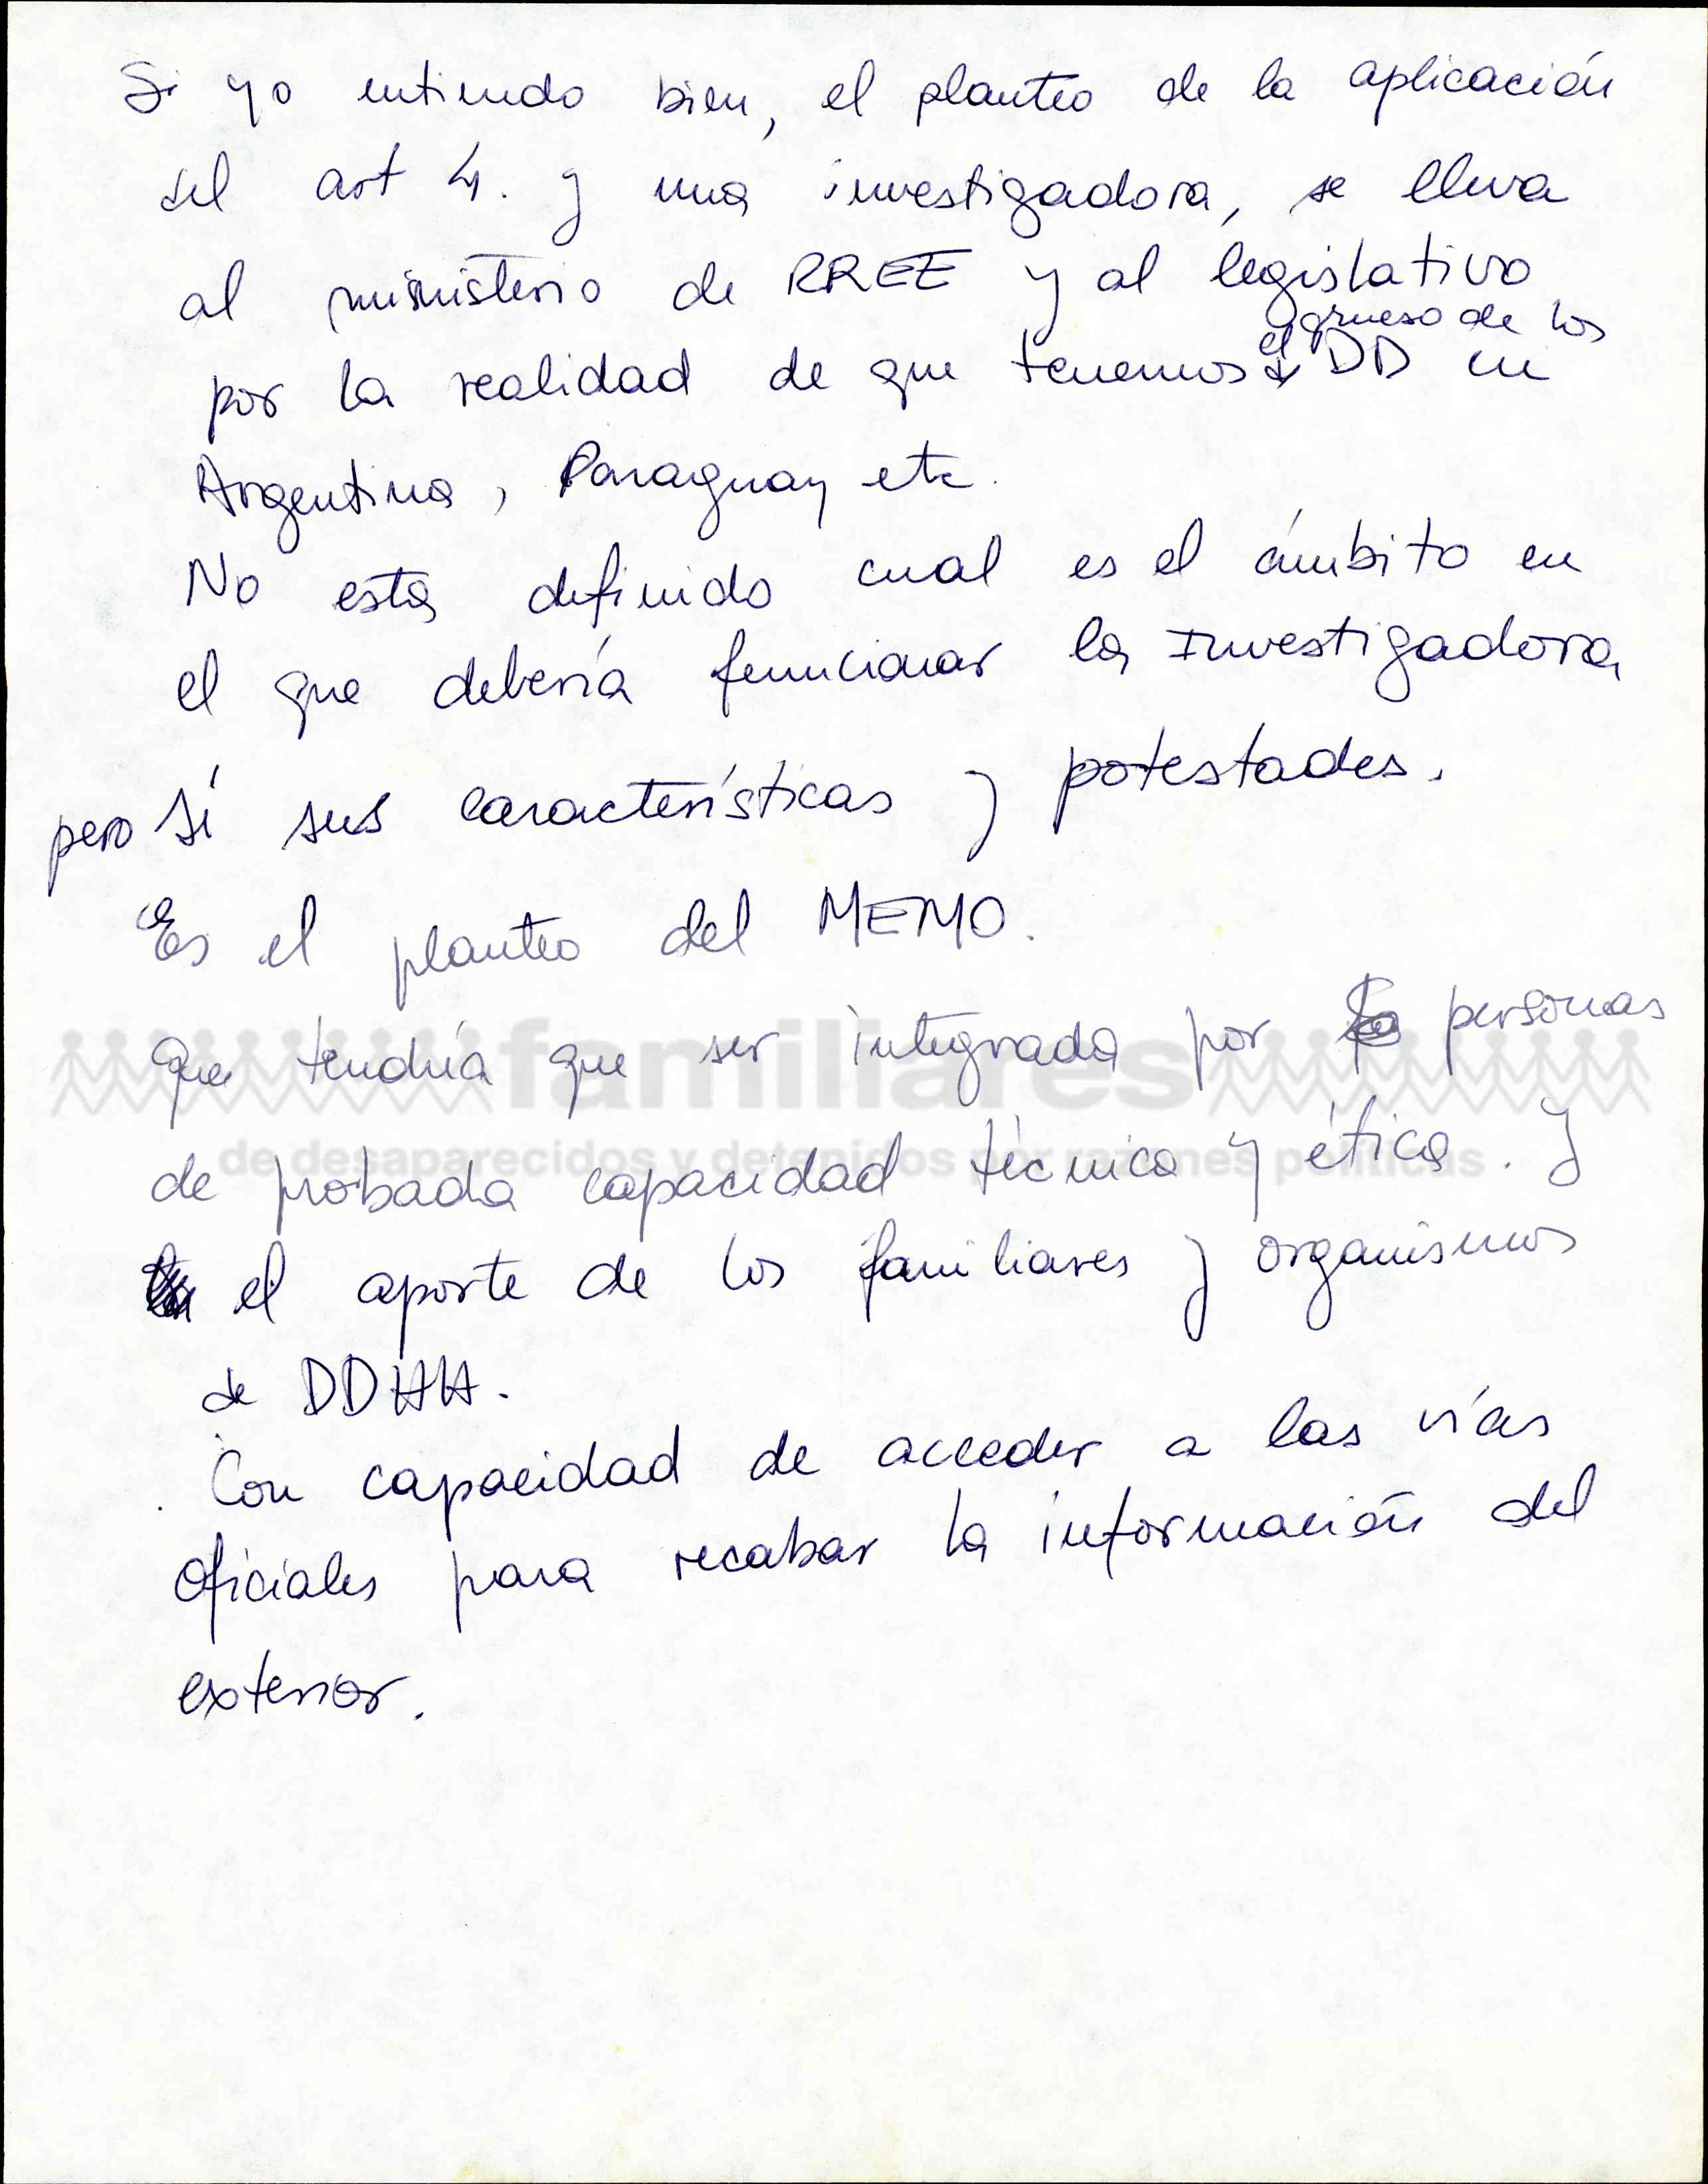 Si yo entiendo bien, el planteo de la aplicación
del art 4. y una investigadora, se lleva
al ministerio de RREE y al legislativo
por la realidad de que tenemos el grueso de los DD en
Argentina, Paraguay etc.
No esta definido cual es el ámbito en
el que debería funcionar la Investigadora
pero sí sus características y potestades.
Es el planteo del MEMO.
que tendría que ser integrada por personas
familiares
de probada capacidad técnica y ética. Y
de desaparecidos y detenidos por razones políticas
el aporte de los familiares y organismos
de DDHH.
. Con capacidad de acceder a las vías
oficiales para recabar la información del
exterior.